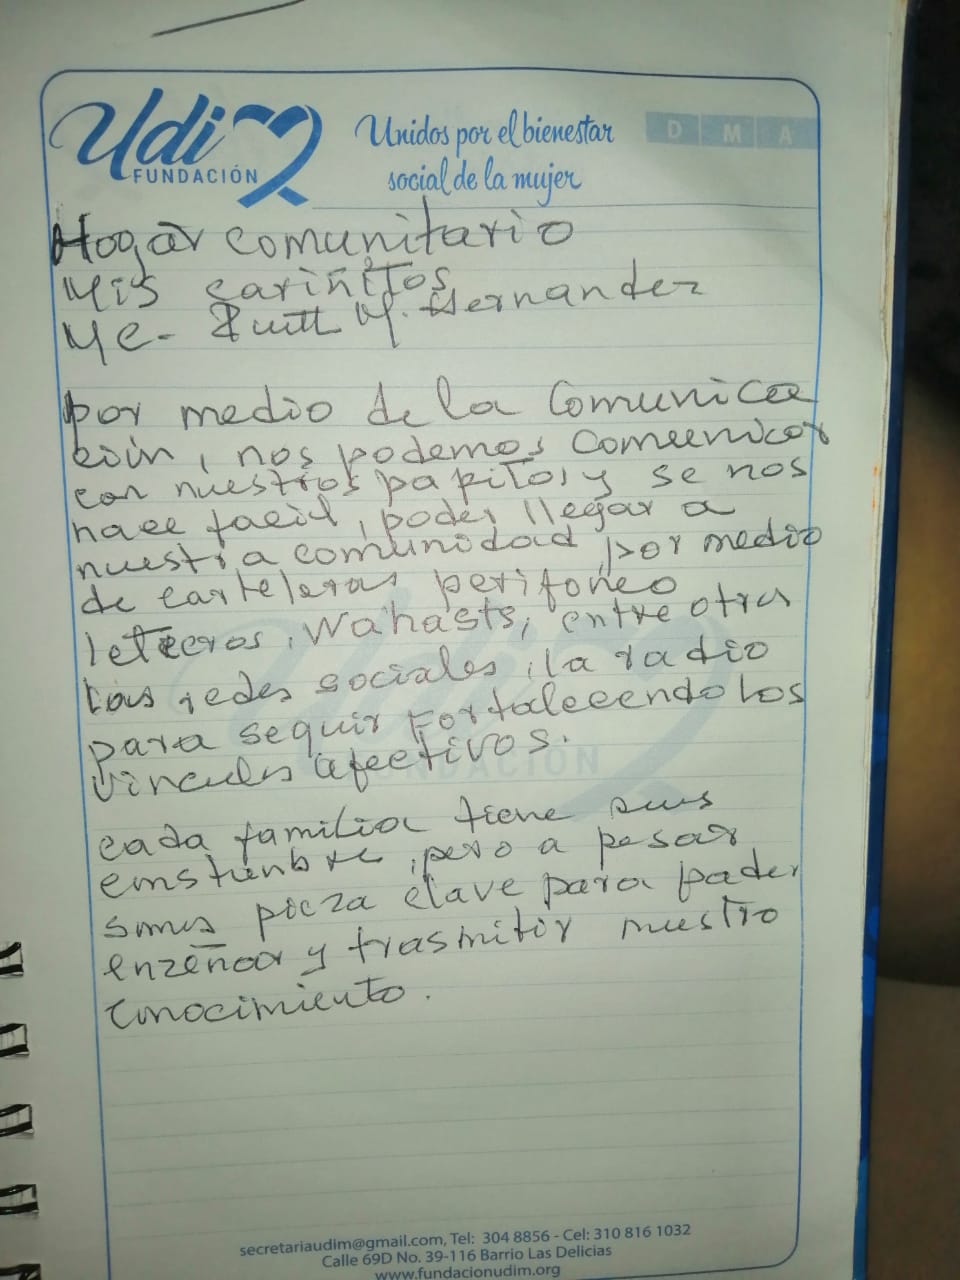 Udi
FUNDACIÓN
Unidos por el bienestar
social de la mujer
D M A
Hogar comunitario
Mis cariñitos
MC- Ruitt M. Hernandez
por medio de la Comunica
ción, nos podemos comunicar
con nuestros papitos, y se nos
hace facil, poder llegar a
nuestra comunidad, por medio
de carteleras perifoneo
letreros, Wahasts, entre otras
las redes sociales, la radio
para seguir Fortaleciendo los
vinculos afectivos.
cada familia tiene sus
custunbre, pero a pesar
somos pieza clave para poder
enzeñar y trasmitir nuestro
conocimiento.
Udi
FUNDACIÓN
secretariaudim@gmail.com, Tel: 304 8856 - Cel: 310 816 1032
Calle 69D No. 39-116 Barrio Las Delicias
www.fundacionudim.org